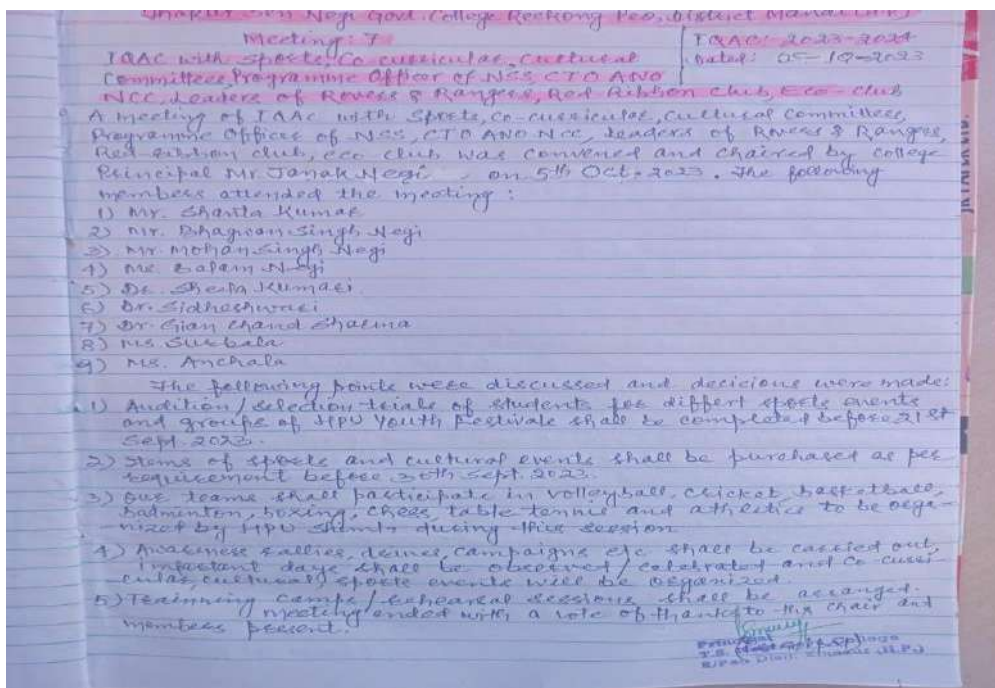 Thakur Sen Negi Govt. College Reckong Peo, District
Meeting: 7
IQAC: 2023-2024
IQAC with Sports, Co curricular, Cultural
Dated: 05-10-2023
Committees, Programme Officer of NSS, CTO ANO
NCC, Leaders of Rovers & Rangers, Red Ribbon Club, Eco-club
A meeting of IQAC with Sports, co-curricular, cultural committees,
Programme Officer of NSS, CTO ANO NCC, Leaders of Rovers & Rangers,
Red Ribbon club, eco club was convened and chaired by college
Principal Mr. Janak Negi on 5th Oct. 2023. The following
members attended the meeting:
1) Mr. Shanta Kumar
2) Mr. Bhagwan Singh Negi
3) Mr. Mohan Singh Negi
4) Negi
5) Dr. Kumari
6) Dr. Sidheshwari
7) Dr. Gian Chand Sharma
8) Ms. Surbala
9) Ms. Anchala
The following points were discussed and decicious were made:
1) Audition/selection trials of students for differt sports events
and groups of HPU Youth Festivals shall be completed before 21st
Sept. 2023.
2) Items of sports and cultural events shall be purchased as per
requirement before 30th Sept. 2023.
3) Our teams shall participate in volleyball, cricket, basketball,
badminton, boxing, chess, table tennis and athletics to be orga-
nized by HPU Shimla during this session.
4) Awareness rallies, drives, campaigns etc shall be carried out,
important days shall be observed/celebrated and co-curri-
cular, cultural, sports events will be organized.
5) Trainning camps/rehearsal sessions shall be arranged.
meeting ended with a vote of thanks to the chair and
members present.
Principal
(H.P.)